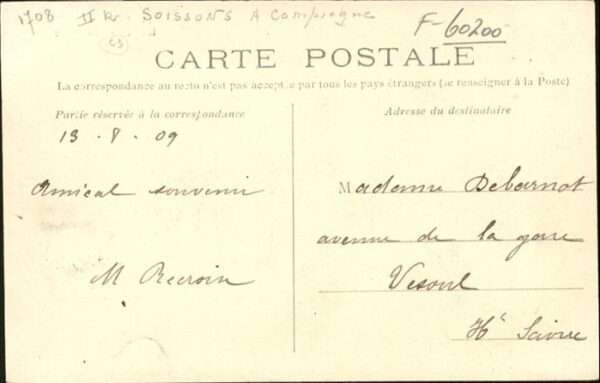 1708 II k. SOISSONS A Compiegne
F-60200
63
CARTE POSTALE
La correspondance au recto n'est pas acceptée par tous les pays étrangers (se renseigner à la Poste)
Partie réservée à la correspondance
Adresse du destinataire
13 - 8 - 09
Amical souvenir
M Recroix
Madame Debarnot
avenue de la gare
Vesoul
Hte Saône